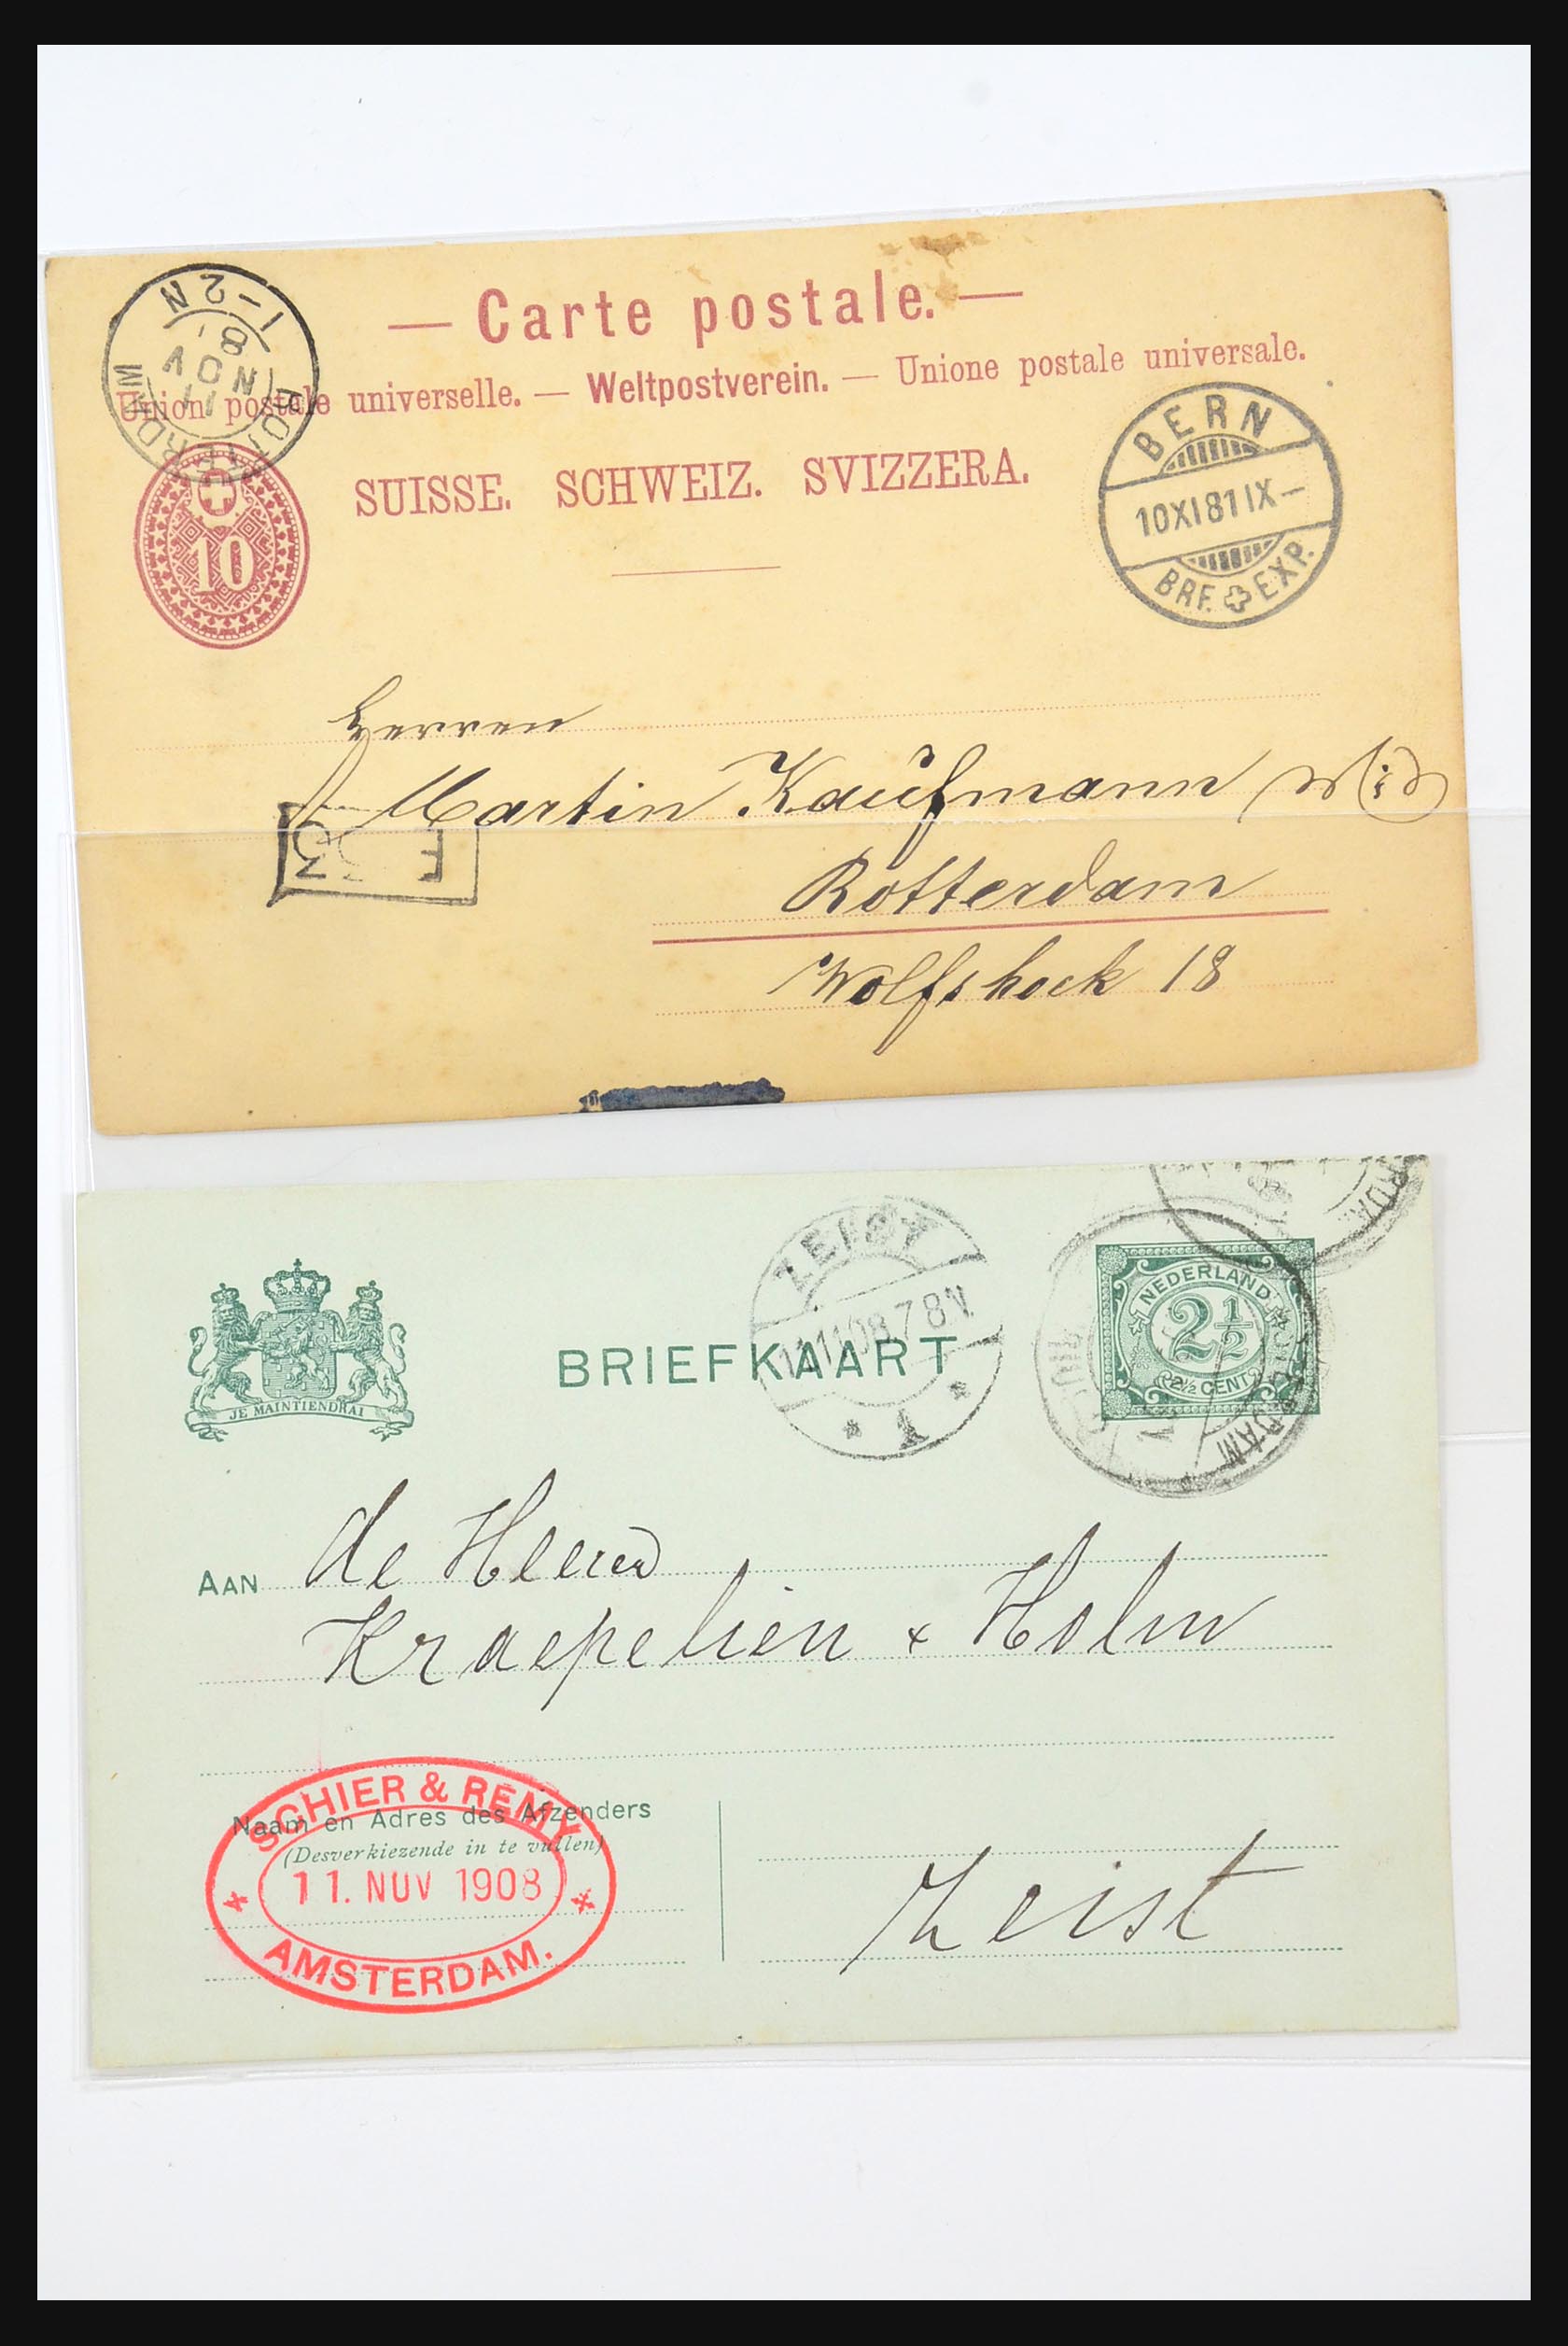 — Carte postale. —
Union postale universelle. — Weltpostverein. — Unione postale universale.
SUISSE. SCHWEIZ. SVIZZERA.
ROTTERDAM
1-2N
11
NOV
81
10
BERN
10 XI 81 IX –
BRF. EXP.
Herren
Martin Kaufmann
Rotterdam
Wolfshoek 18
JE MAINTIENDRAI
BRIEFKAART
ZEIST
11.11.08 7 8V
1
NEDERLAND
2½
2½ CENT
AAN de Heeren
Kraepelien & Holm
Zeist
Naam en Adres des Afzenders
(Desverkiezende in te vullen)
SCHIER & REMY
11. NOV 1908
AMSTERDAM.